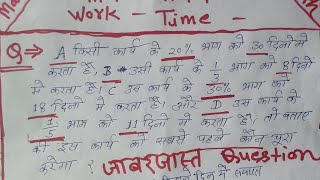 Work - Time -
Q→ A किसी कार्य के 20% भाग को 30 दिनों में
करता है, B - उसी कार्य के 1/3 भाग को 8 दिनों
में करता है। C उस कार्य के 30% भाग को
18 दिनों में करता है, और D उस कार्य के
1/5 भाग को 11 दिनों में करता है, तो बताएं
की इस कार्य को सबसे पहले कौन पूरा
करेगा ? जाबरजास्त Question